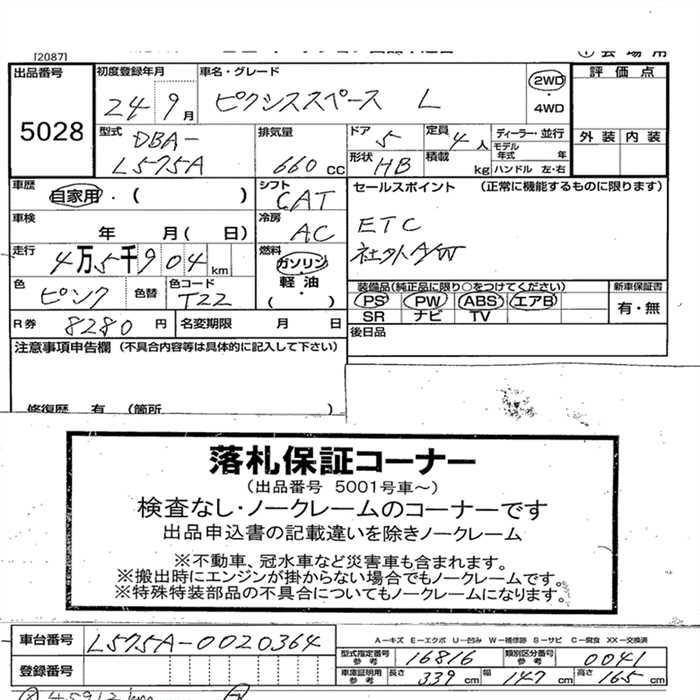 [2087]
会場用
出品番号
5028
初度登録年月
24 9月
車名・グレード
ピクシススペース L
2WD
・
4WD
評価点
外装 内装
型式
DBA-
L575A
排気量
660 cc
ドア 5
形状 HB
定員 4人
積載 kg
ディーラー・並行
モデル年式 年
ハンドル 左・右
車歴
自家用・( )
車検
年 月(日)
走行
4万5千904km
色
ピンク
色替
色コード
T22
シフト
CAT
冷房
AC
燃料
ガソリン
・
軽油
・
( )
セールスポイント (正常に機能するものに限ります)
ETC
社外A/W
装備品(純正品に限り○をつけてください)
PS PW ABS エアB
SR ナビ TV
新車保証書
有・無
後日品
R券 8280円
名変期限 月 日
注意事項申告欄 (不具合内容等は具体的に記入して下さい)
修復歴 有 (箇所 )
落札保証コーナー
(出品番号 5001号車~)
検査なし・ノークレームのコーナーです
出品申込書の記載違いを除きノークレーム
※不動車、冠水車など災害車も含まれます。
※搬出時にエンジンが掛からない場合でもノークレームです。
※特殊特装部品の不具合についてもノークレームになります。
車台番号 L575A-0020364
登録番号
A-キズ E-エクボ U-凹み W-補修跡 S-サビ C-腐食 XX-交換済
型式指定番号 参考 16816
類別区分番号 参考 0041
車庫証明用 参考 長さ 339cm 幅 147cm 高さ 165cm